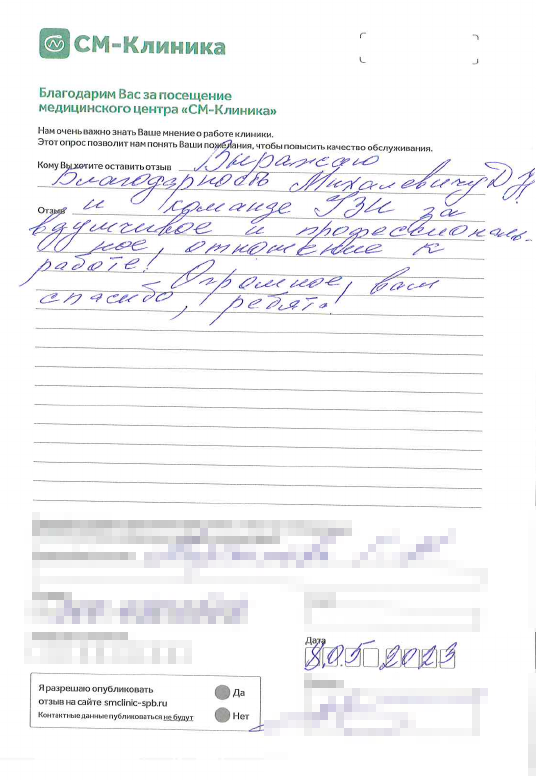 СМ-Клиника
Благодарим Вас за посещение
медицинского центра «СМ-Клиника»
Нам очень важно знать Ваше мнение о работе клиники.
Этот опрос позволит нам понять Ваши пожелания, чтобы повысить качество обслуживания.
Кому Вы хотите оставить отзыв Выражаю
благодарность Михалевичу Д.Н.
Отзыв и команде УЗИ за
вдумчивое и профессиональ-
ное, отношение к
работе! Огромное, вам
спасибо, ребята!
Дата
8.05 2023
Я разрешаю опубликовать
отзыв на сайте smclinic-spb.ru
Контактные данные публиковаться не будут
Да
Нет